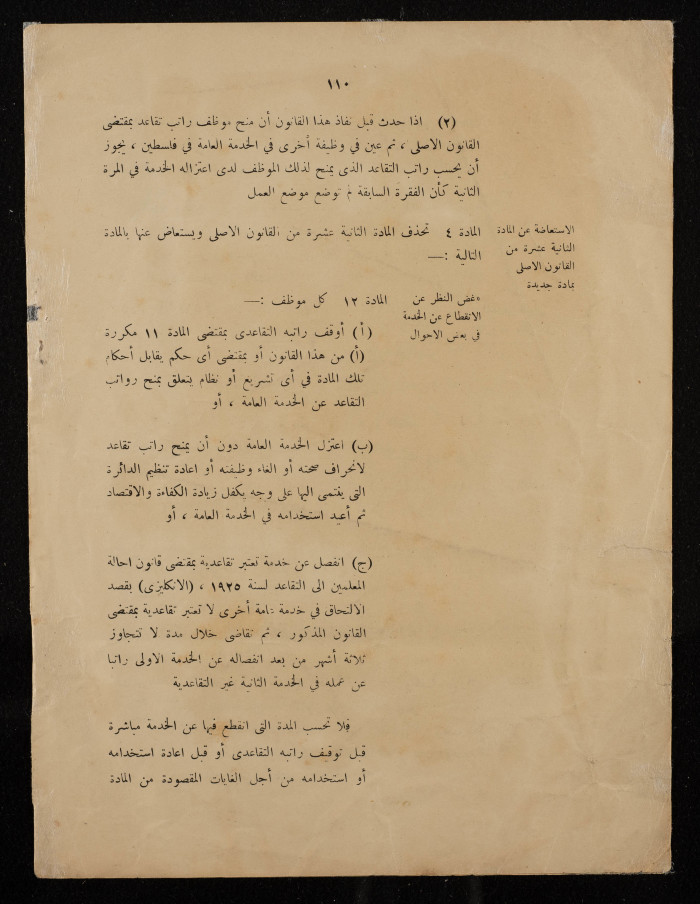 ١١٠
(٢) اذا حدث قبل نفاذ هذا القانون أن منح موظف راتب تقاعد بمقتضى
القانون الاصلى ، ثم عين في وظيفة أخرى في الخدمة العامة في فلسطين ، يجوز
أن يحسب راتب التقاعد الذى يمنح لذلك الموظف لدى اعتزاله الخدمة في المرة
الثانية كأن الفقرة السابقة لم توضع موضع العمل
الاستعاضة عن المادة
الثانية عشرة من
القانون الاصلى
بمادة جديدة
المادة ٤ تحذف المادة الثانية عشرة من القانون الاصلى ويستعاض عنها بالمادة
التالية :—
«غض النظر عن
الانقطاع عن الخدمة
في بعض الاحوال
المادة ١٢ كل موظف :—
(أ) أوقف راتبه التقاعدى بمقتضى المادة ١١ مكررة
(أ) من هذا القانون أو بمقتضى أى حكم يقابل أحكام
تلك المادة في أى تشريع أو نظام يتعلق بمنح رواتب
التقاعد عن الخدمة العامة ، أو
(ب) اعتزل الخدمة العامة دون أن يمنح راتب تقاعد
لانحراف صحته أو الغاء وظيفته أو اعادة تنظيم الدائرة
التى ينتمى اليها على وجه يكفل زيادة الكفاءة والاقتصاد
ثم أعيد استخدامه في الخدمة العامة ، أو
(ج) انفصل عن خدمة تعتبر تقاعدية بمقتضى قانون احالة
المعلمين الى التقاعد لسنة ١٩٢٥ ، (الانكليزى) بقصد
الالتحاق في خدمة عامة أخرى لا تعتبر تقاعدية بمقتضى
القانون المذكور ، ثم تقاضى خلال مدة لا تتجاوز
ثلاثة أشهر من بعد انفصاله عن الخدمة الاولى راتبا
عن عمله في الخدمة الثانية غير التقاعدية
فلا تحسب المدة التى انقطع فيها عن الخدمة مباشرة
قبل توقيف راتبه التقاعدى أو قبل اعادة استخدامه
أو استخدامه من أجل الغايات المقصودة من المادة